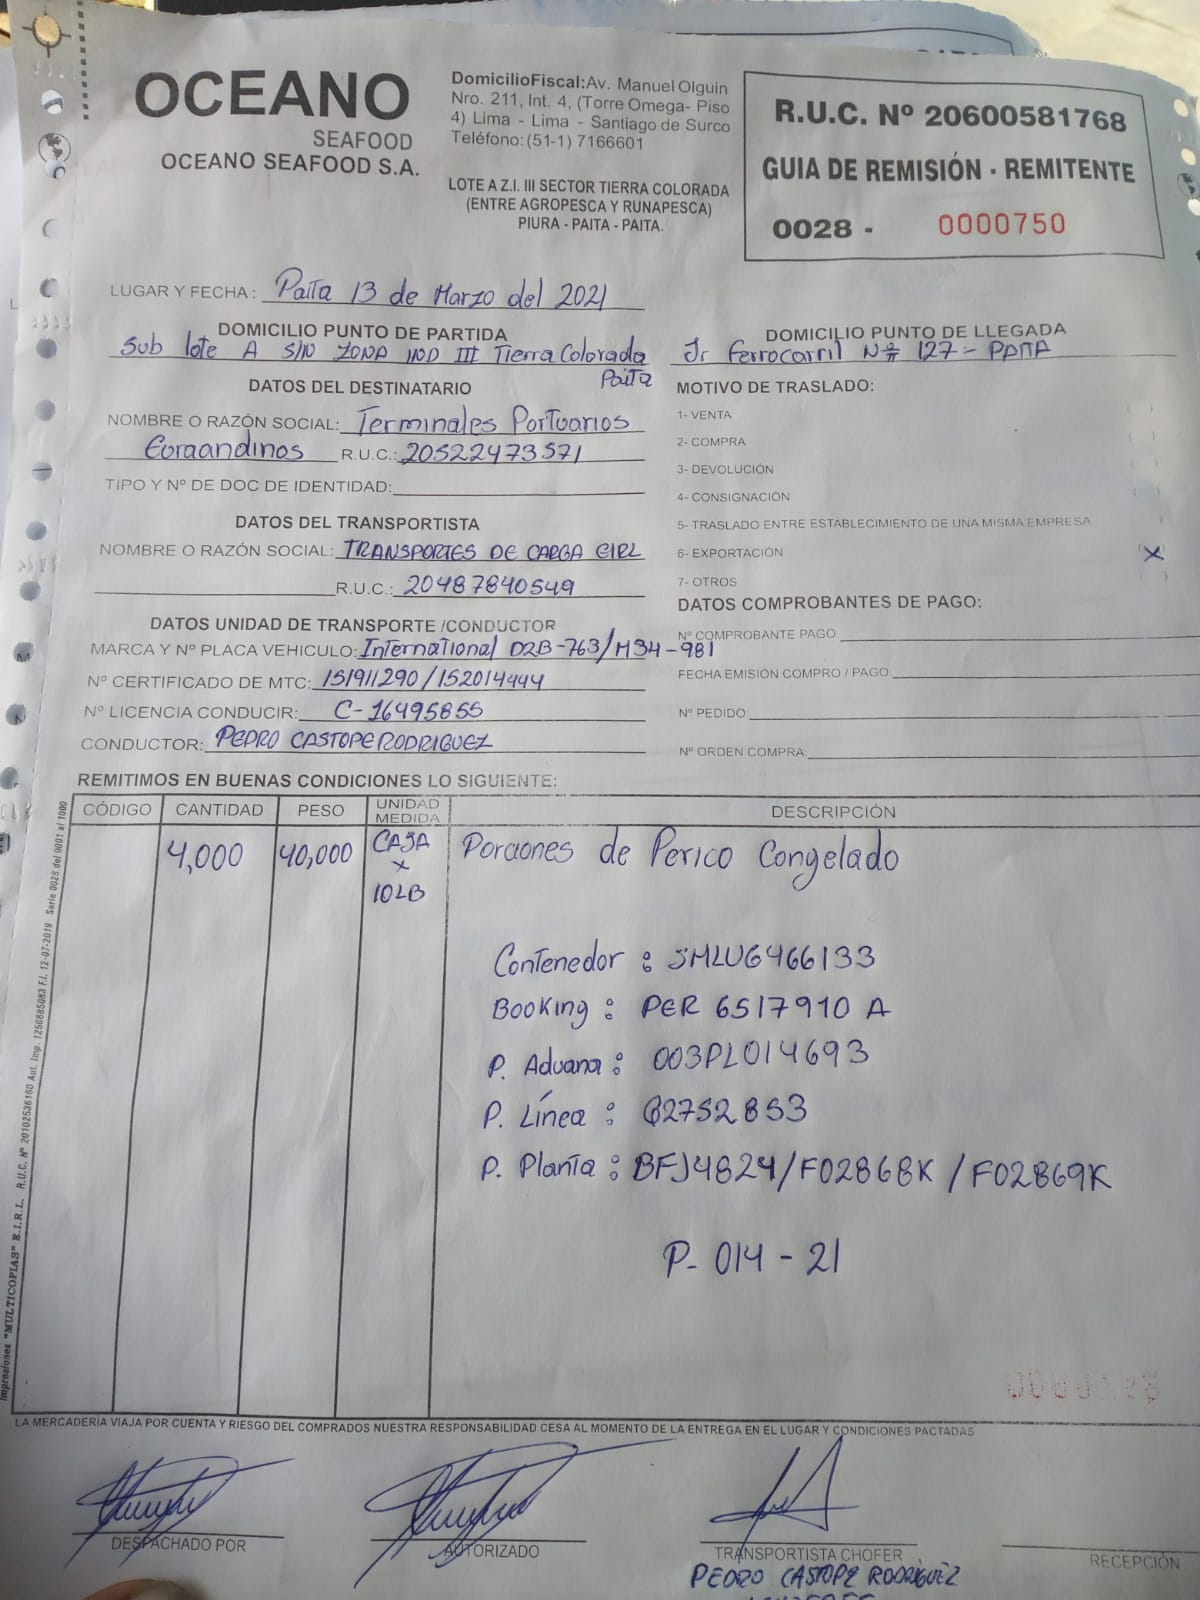 OCEANO
SEAFOOD
OCEANO SEAFOOD S.A.
DomicilioFiscal:Av. Manuel Olguin
Nro. 211, Int. 4, (Torre Omega- Piso
4) Lima - Lima - Santiago de Surco
Teléfono: (51-1) 7166601
LOTE A Z.I. III SECTOR TIERRA COLORADA
(ENTRE AGROPESCA Y RUNAPESCA)
PIURA - PAITA - PAITA.
R.U.C. Nº 20600581768
GUIA DE REMISIÓN - REMITENTE
0028 - 0000750
LUGAR Y FECHA: Paita 13 de Marzo del 2021
DOMICILIO PUNTO DE PARTIDA
Sub lote A S/N ZONA IND III Tierra Colorada
Paita
DOMICILIO PUNTO DE LLEGADA
Jr Ferrocarril N# 127 - PAITA
DATOS DEL DESTINATARIO
NOMBRE O RAZÓN SOCIAL: Terminales Portuarios
Euroandinos R.U.C.: 20522473571
TIPO Y Nº DE DOC DE IDENTIDAD:
DATOS DEL TRANSPORTISTA
NOMBRE O RAZÓN SOCIAL: TRANSPORTES DE CARGA EIRL
R.U.C.: 20487840549
DATOS UNIDAD DE TRANSPORTE /CONDUCTOR
MARCA Y Nº PLACA VEHICULO: International D2B-763/M34-981
Nº CERTIFICADO DE MTC: 151911290/152014444
Nº LICENCIA CONDUCIR: C-16495855
CONDUCTOR: PEDRO CASTOPE RODRIGUEZ
MOTIVO DE TRASLADO:
1- VENTA
2- COMPRA
3- DEVOLUCIÓN
4- CONSIGNACIÓN
5- TRASLADO ENTRE ESTABLECIMIENTO DE UNA MISMA EMPRESA
6- EXPORTACIÓN X
7- OTROS
DATOS COMPROBANTES DE PAGO:
Nº COMPROBANTE PAGO
FECHA EMISIÓN COMPRO / PAGO
Nº PEDIDO:
Nº ORDEN COMPRA
REMITIMOS EN BUENAS CONDICIONES LO SIGUIENTE:
CÓDIGO CANTIDAD PESO UNIDAD MEDIDA DESCRIPCIÓN
4,000 40,000 CAJA x 10LB Porciones de Perico Congelado
Contenedor : SMLU6466133
Booking : PER 6517910 A
P. Aduana : 003PL014693
P. Línea : 2752853
P. Planta : BFJ4824/F02868K/F02869K
P- 014 - 21
Impresiones "MULTICOPIAS" E.I.R.L. R.U.C. Nº 20102536160 Aut. Imp. 1256885083 F.I. 12-07-2019 Serie 0028 del 0001 al 1000
LA MERCADERÍA VIAJA POR CUENTA Y RIESGO DEL COMPRADOS NUESTRA RESPONSABILIDAD CESA AL MOMENTO DE LA ENTREGA EN EL LUGAR Y CONDICIONES PACTADAS
DESPACHADO POR
AUTORIZADO
TRANSPORTISTA CHOFER
PEDRO CASTOPE RODRIGUEZ
RECEPCIÓN